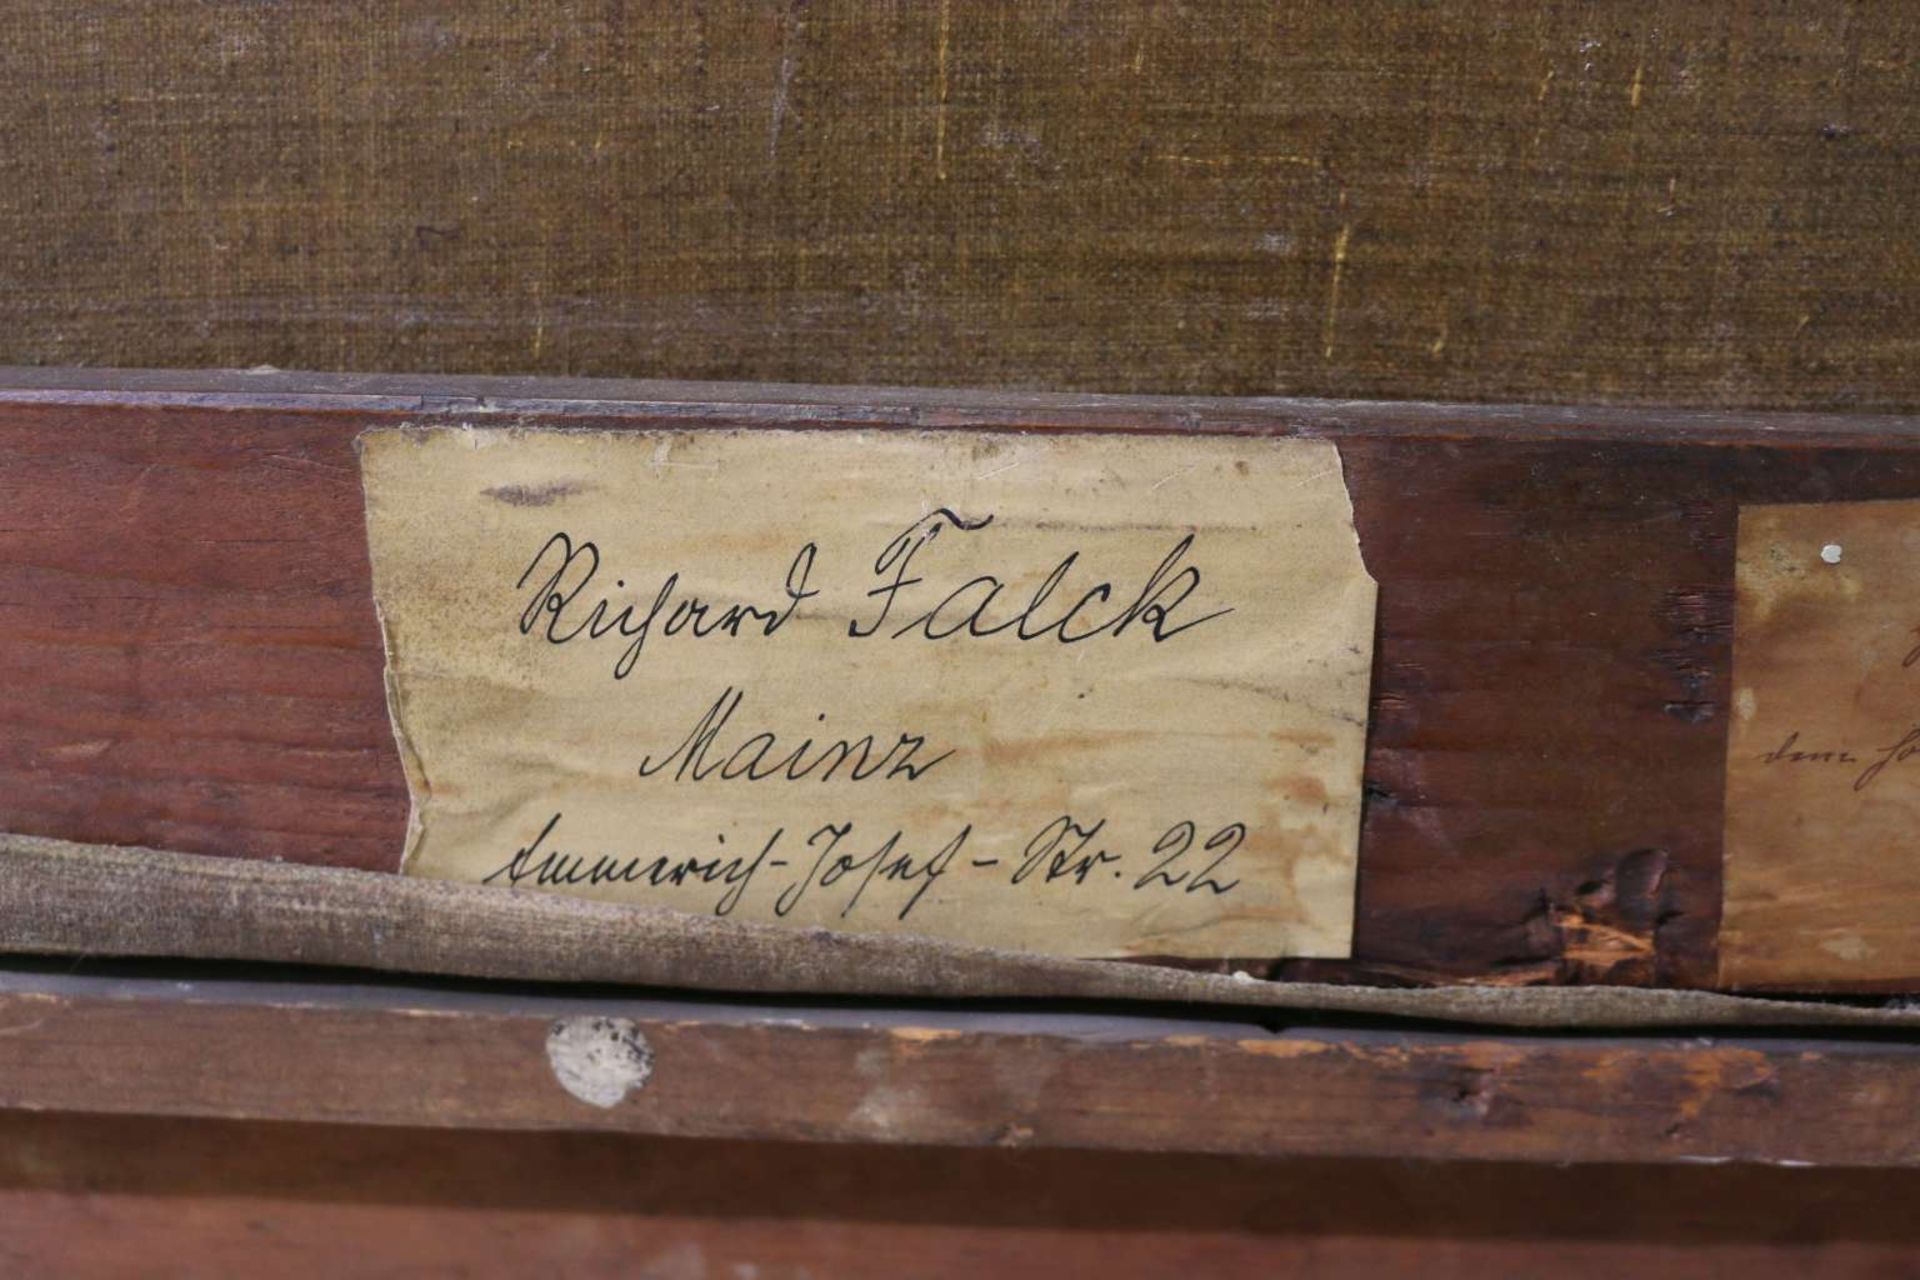 Richard Falck
Mainz
Emmerich-Josef-Str. 22
dem